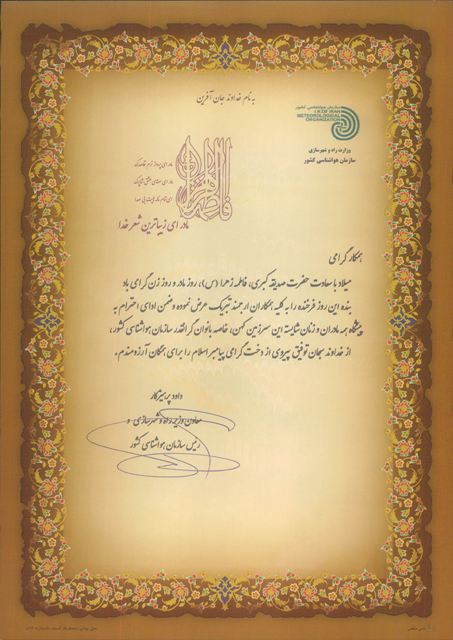 به نام خداوند جان آفرین
سازمان هواشناسی کشور
I.R.OF IRAN
METEOROLOGICAL
ORGANIZATION
وزارت راه و شهرسازی
سازمان هواشناسی کشور
مادر ای زیباترین شعر خدا
همکار گرامی
میلاد با سعادت حضرت صدیقه کبری، فاطمه زهرا (س)، روز مادر و روز زن گرامی باد
بنده این روز فرخنده را به کلیه همکاران ارجمند تبریک عرض نموده و ضمن ادای احترام به
پیشگاه همه مادران و زنان شایسته این سرزمین کهن، خاصه بانوان گرانقدر سازمان هواشناسی کشور،
از خداوند سبحان توفیق پیروی از دخت گرامی پیامبر اسلام را برای همگان آرزومندم.
داود پرهیزکار
معاون وزیر راه و شهرسازی و
رئیس سازمان هواشناسی کشور